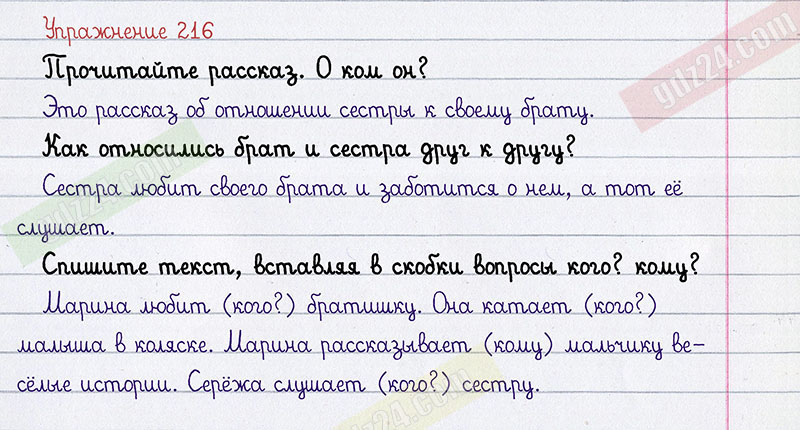 Упражнение 216
Прочитайте рассказ. О ком он?
Это рассказ об отношении сестры к своему брату.
Как относились брат и сестра друг к другу?
Сестра любит своего брата и заботится о нем, а тот её
слушает.
Спишите текст, вставляя в скобки вопросы кого? кому?
Марина любит (кого?) братишку. Она катает (кого?)
малыша в коляске. Марина рассказывает (кому) мальчику ве-
сёлые истории. Серёжа слушает (кого?) сестру.
ydz24.com
ydz24.com
ydz24.com